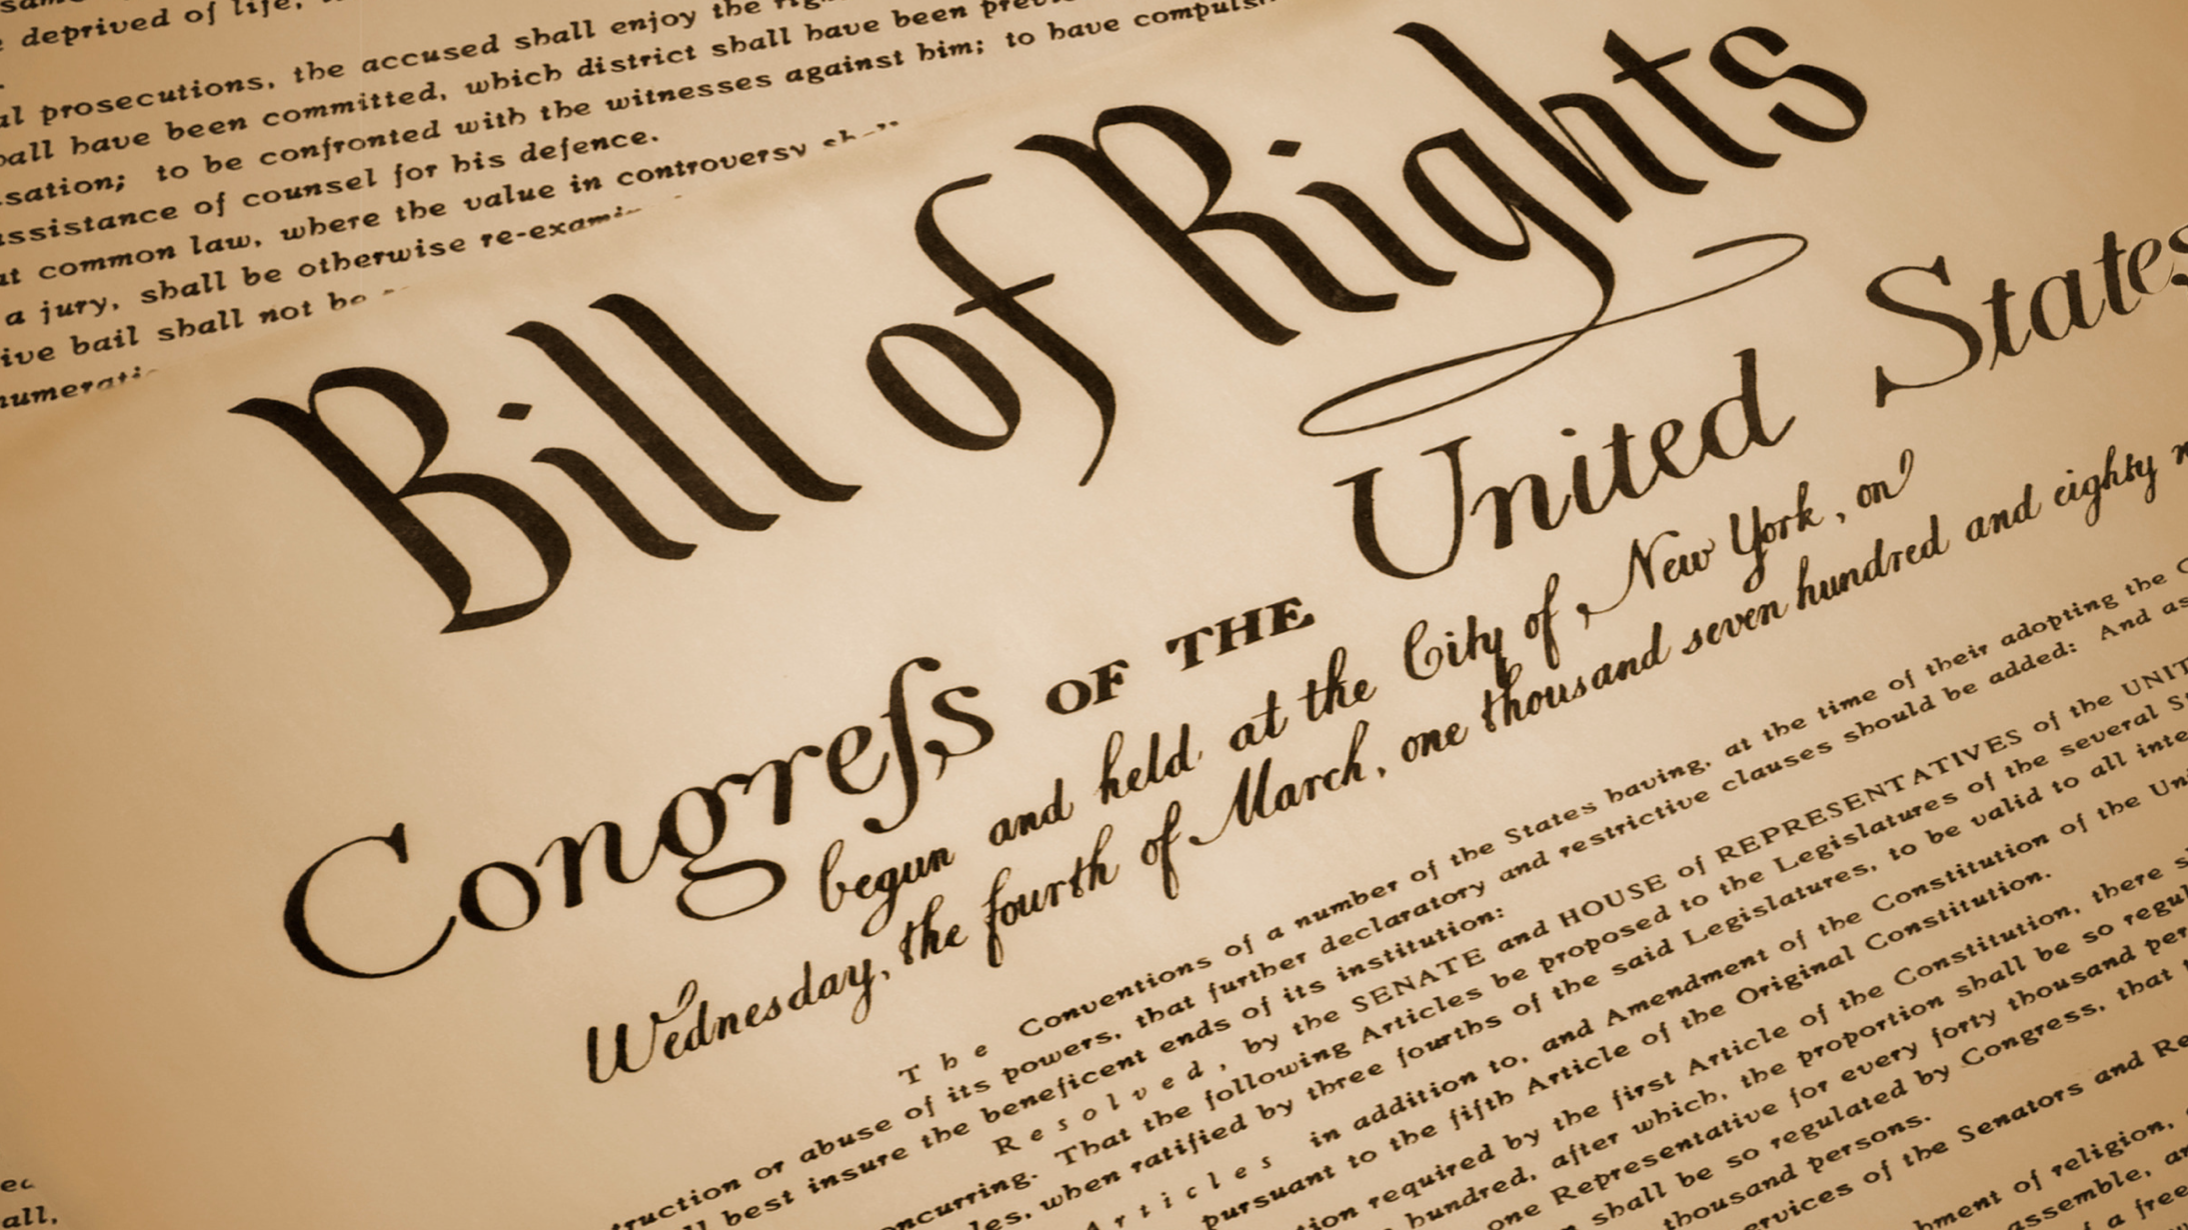 deprived of life,
prosecutions, the accused shall enjoy the
have been committed, which district shall have been
to be confronted with the witnesses against him; to have
of counsel for his defence.
common law, where the value in controversy
a jury, shall be otherwise
bail shall not be
Bill of Rights
Congreſs OF THE United States
begun and held at the City of New York, on
Wednesday, the fourth of March, one thousand seven hundred and eighty
The Conventions of a number of the States having, at the time of their adopting the
or abuse of its powers, that further declaratory and restrictive clauses should be added: And as
best insure the beneficent ends of its institution:
Resolved, by the SENATE and HOUSE of REPRESENTATIVES of the
That the following Articles be proposed to the Legislatures of the several
when ratified by three fourths of the said Legislatures, to be valid to all
Articles in addition to, and Amendment of the Constitution of the
pursuant to the fifth Article of the Original Constitution.
required by the first Article of the Constitution, there
hundred, after which, the proportion shall be so
one Representative for every forty thousand
shall be so regulated by Congress, that
thousand persons.
of the Senators and
of religion,
assemble,
a free
all,